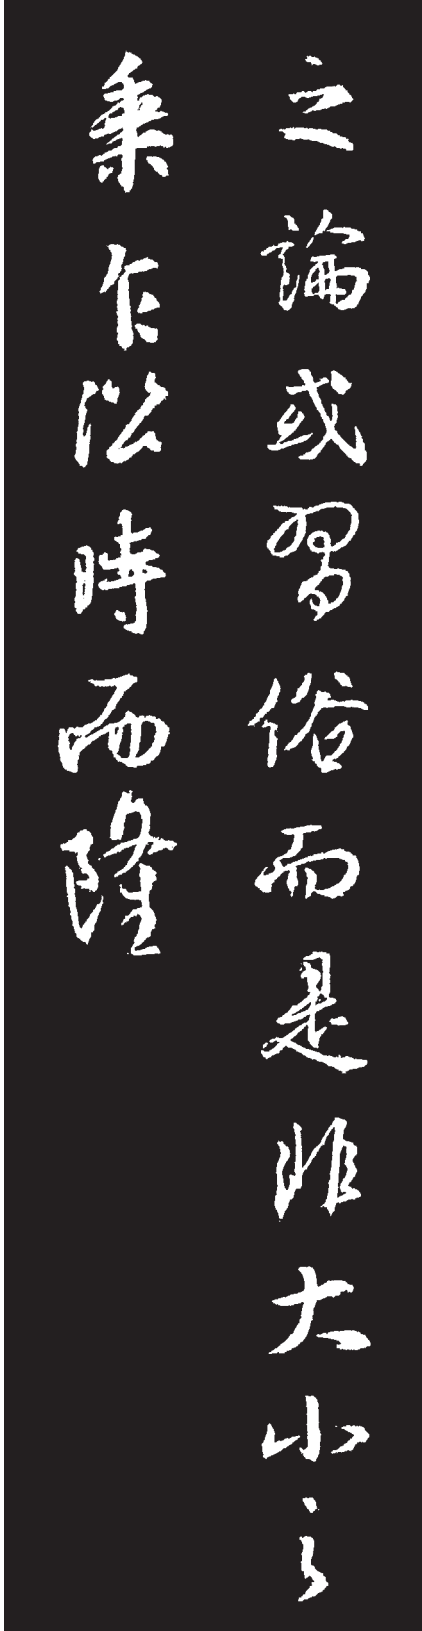 之論或習俗而是非大小之
乘乍沿時而隆